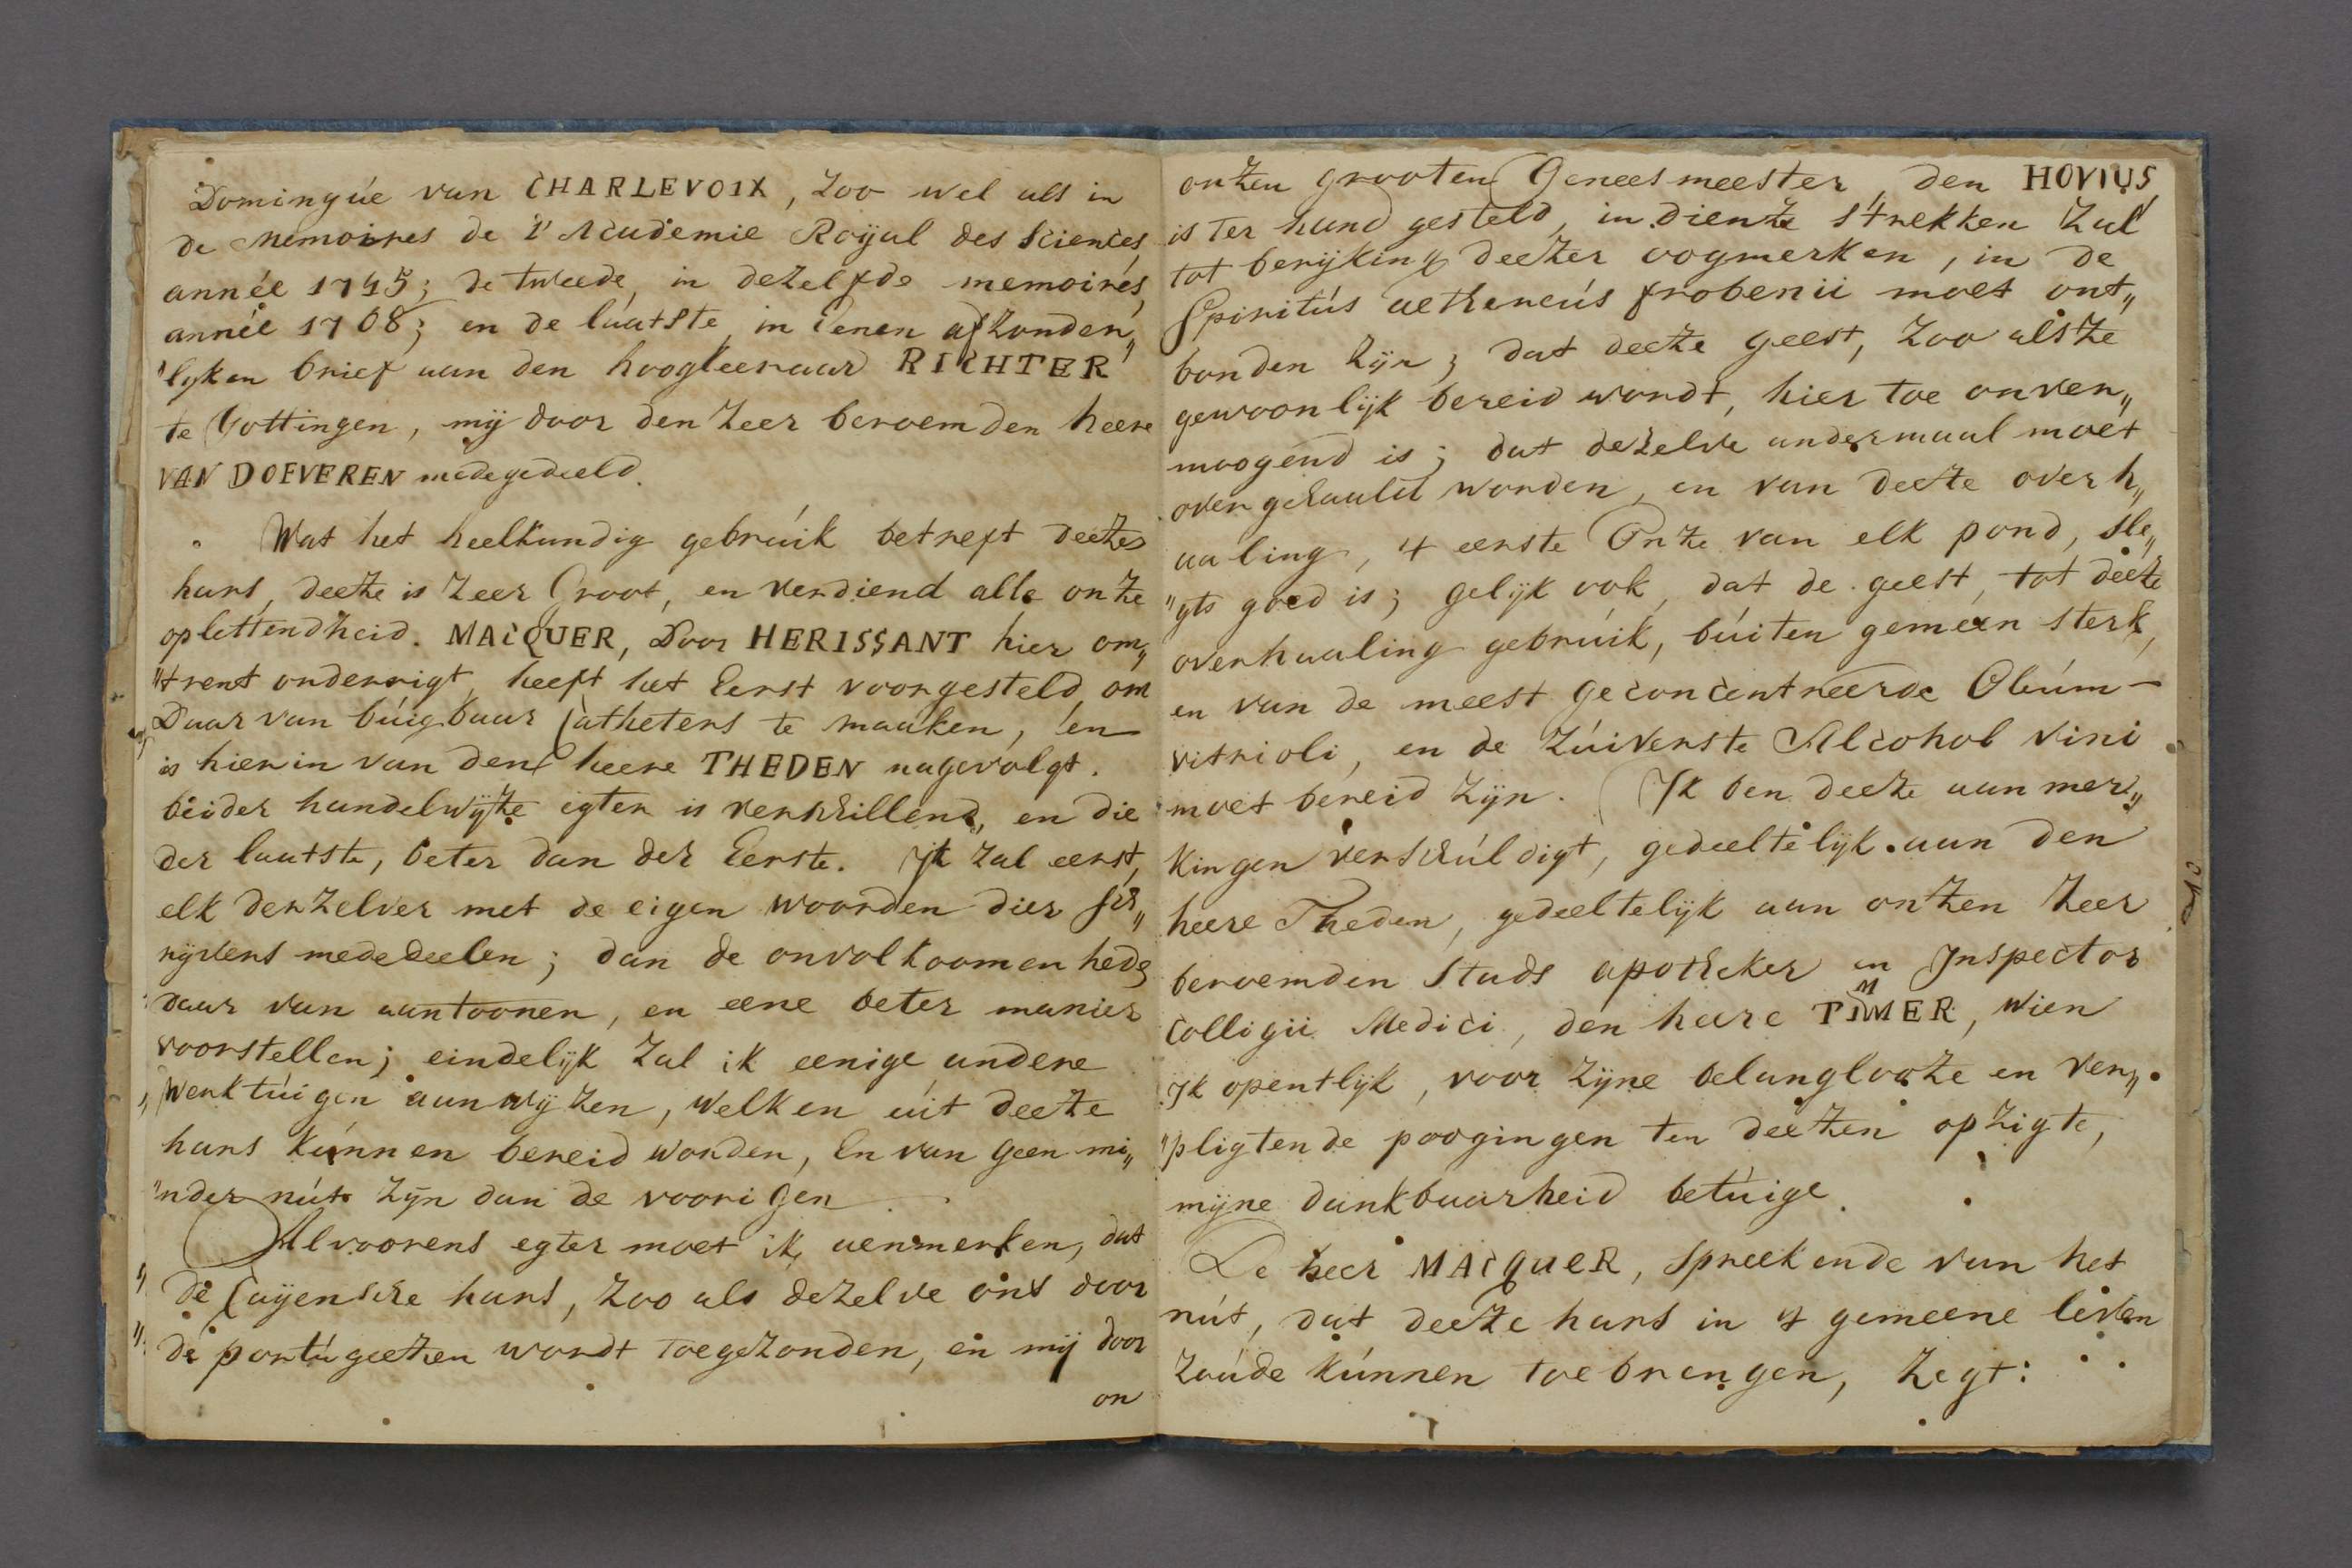 Domingúe van CHARLEVOIX, zoo wel als in
de Memoires de l'Academie Roÿal des Sciences,
année 1745; de tweede, in dezelfde memoires,
année 1768; en de láátste, in eenen afzonder„
"lyken brief aan den hoogleeraar RICHTER
te Gottingen, mÿ door den zeer beroemden heere
VAN DOEVEREN medegedeeld.
Wat het heelkundig gebrúik betreft deezes
hars, deeze is zeer Groot, en verdiend alle onze
oplettendheid. MACQUER, Door HERISSANT hier om„
"trent onderrigt, heeft het Eerst voorgesteld, om
Daar van búigbaar Catheters te maaken, en
is hier in van den heere THEDEN nagevolgt.
beider handelwÿze egter is verschillend, en die
der laatste, beter dan der Eerste. Ik zal eerst,
elk derzelver met de eigen woorden dier sch„
rÿvers mededeelen; dan de onvolkoomenheds
daar van aantoonen, en eene beter manier
voorstellen; eindelÿk zal ik eenige andere
Werktúigen aanwÿzen, welken úit deeze
hars kúnnen bereid worden, En van geen mi„
"nder nút zÿn dan de voorigen.
Alvoorens egter moet ik, aenmerken, dat
de Caÿensche hars, zoo als dezelve ons door
de portúgeezen wordt toegezonden, en mÿ door
on
onzen grooten Geneesmeester, den HOVIUS,
is ter hand gesteld, in dienze strekken zal
tot berÿking deezer oogmerken, in de
Spiritús aethereús frobenii moet ont„
bonden zÿn; dat deeze geest, zoo als ze
gewoonlÿk bereid wordt, hier toe onver„
moogend is; dat dezelve andermaal moet
overgehaald worden, en van deeze overh„
aaling, 4 eerste Onze van elk pond, sle„
"gts goed is; gelÿk ook, dat de geest, tot deeze
overhaaling gebrúik, búiten gemeen sterk,
en van de meest geconcentreerde Oleúm
vitrioli, en de zúiverste Alcohol vini
moet bereid zÿn. Ik ben deeze aanmer„
kingen verschúldigt, gedeeltelÿk aan den
heere Theden, gedeeltelÿk aan onzen zeer
beroemden Stads apotheker en Inspector
Colligii Medici, den heere TIMMER, wien
Ik opentlÿk, voor zÿne belanglooze en ver„
"pligtende poogingen ten deezen opzigte,
mÿne dankbaarheid betúige.
De heer MACQUER, Spreekende van het
nút, dat deeze hars in 't gemeene leven
zoúde kúnnen toebrengen, zegt: